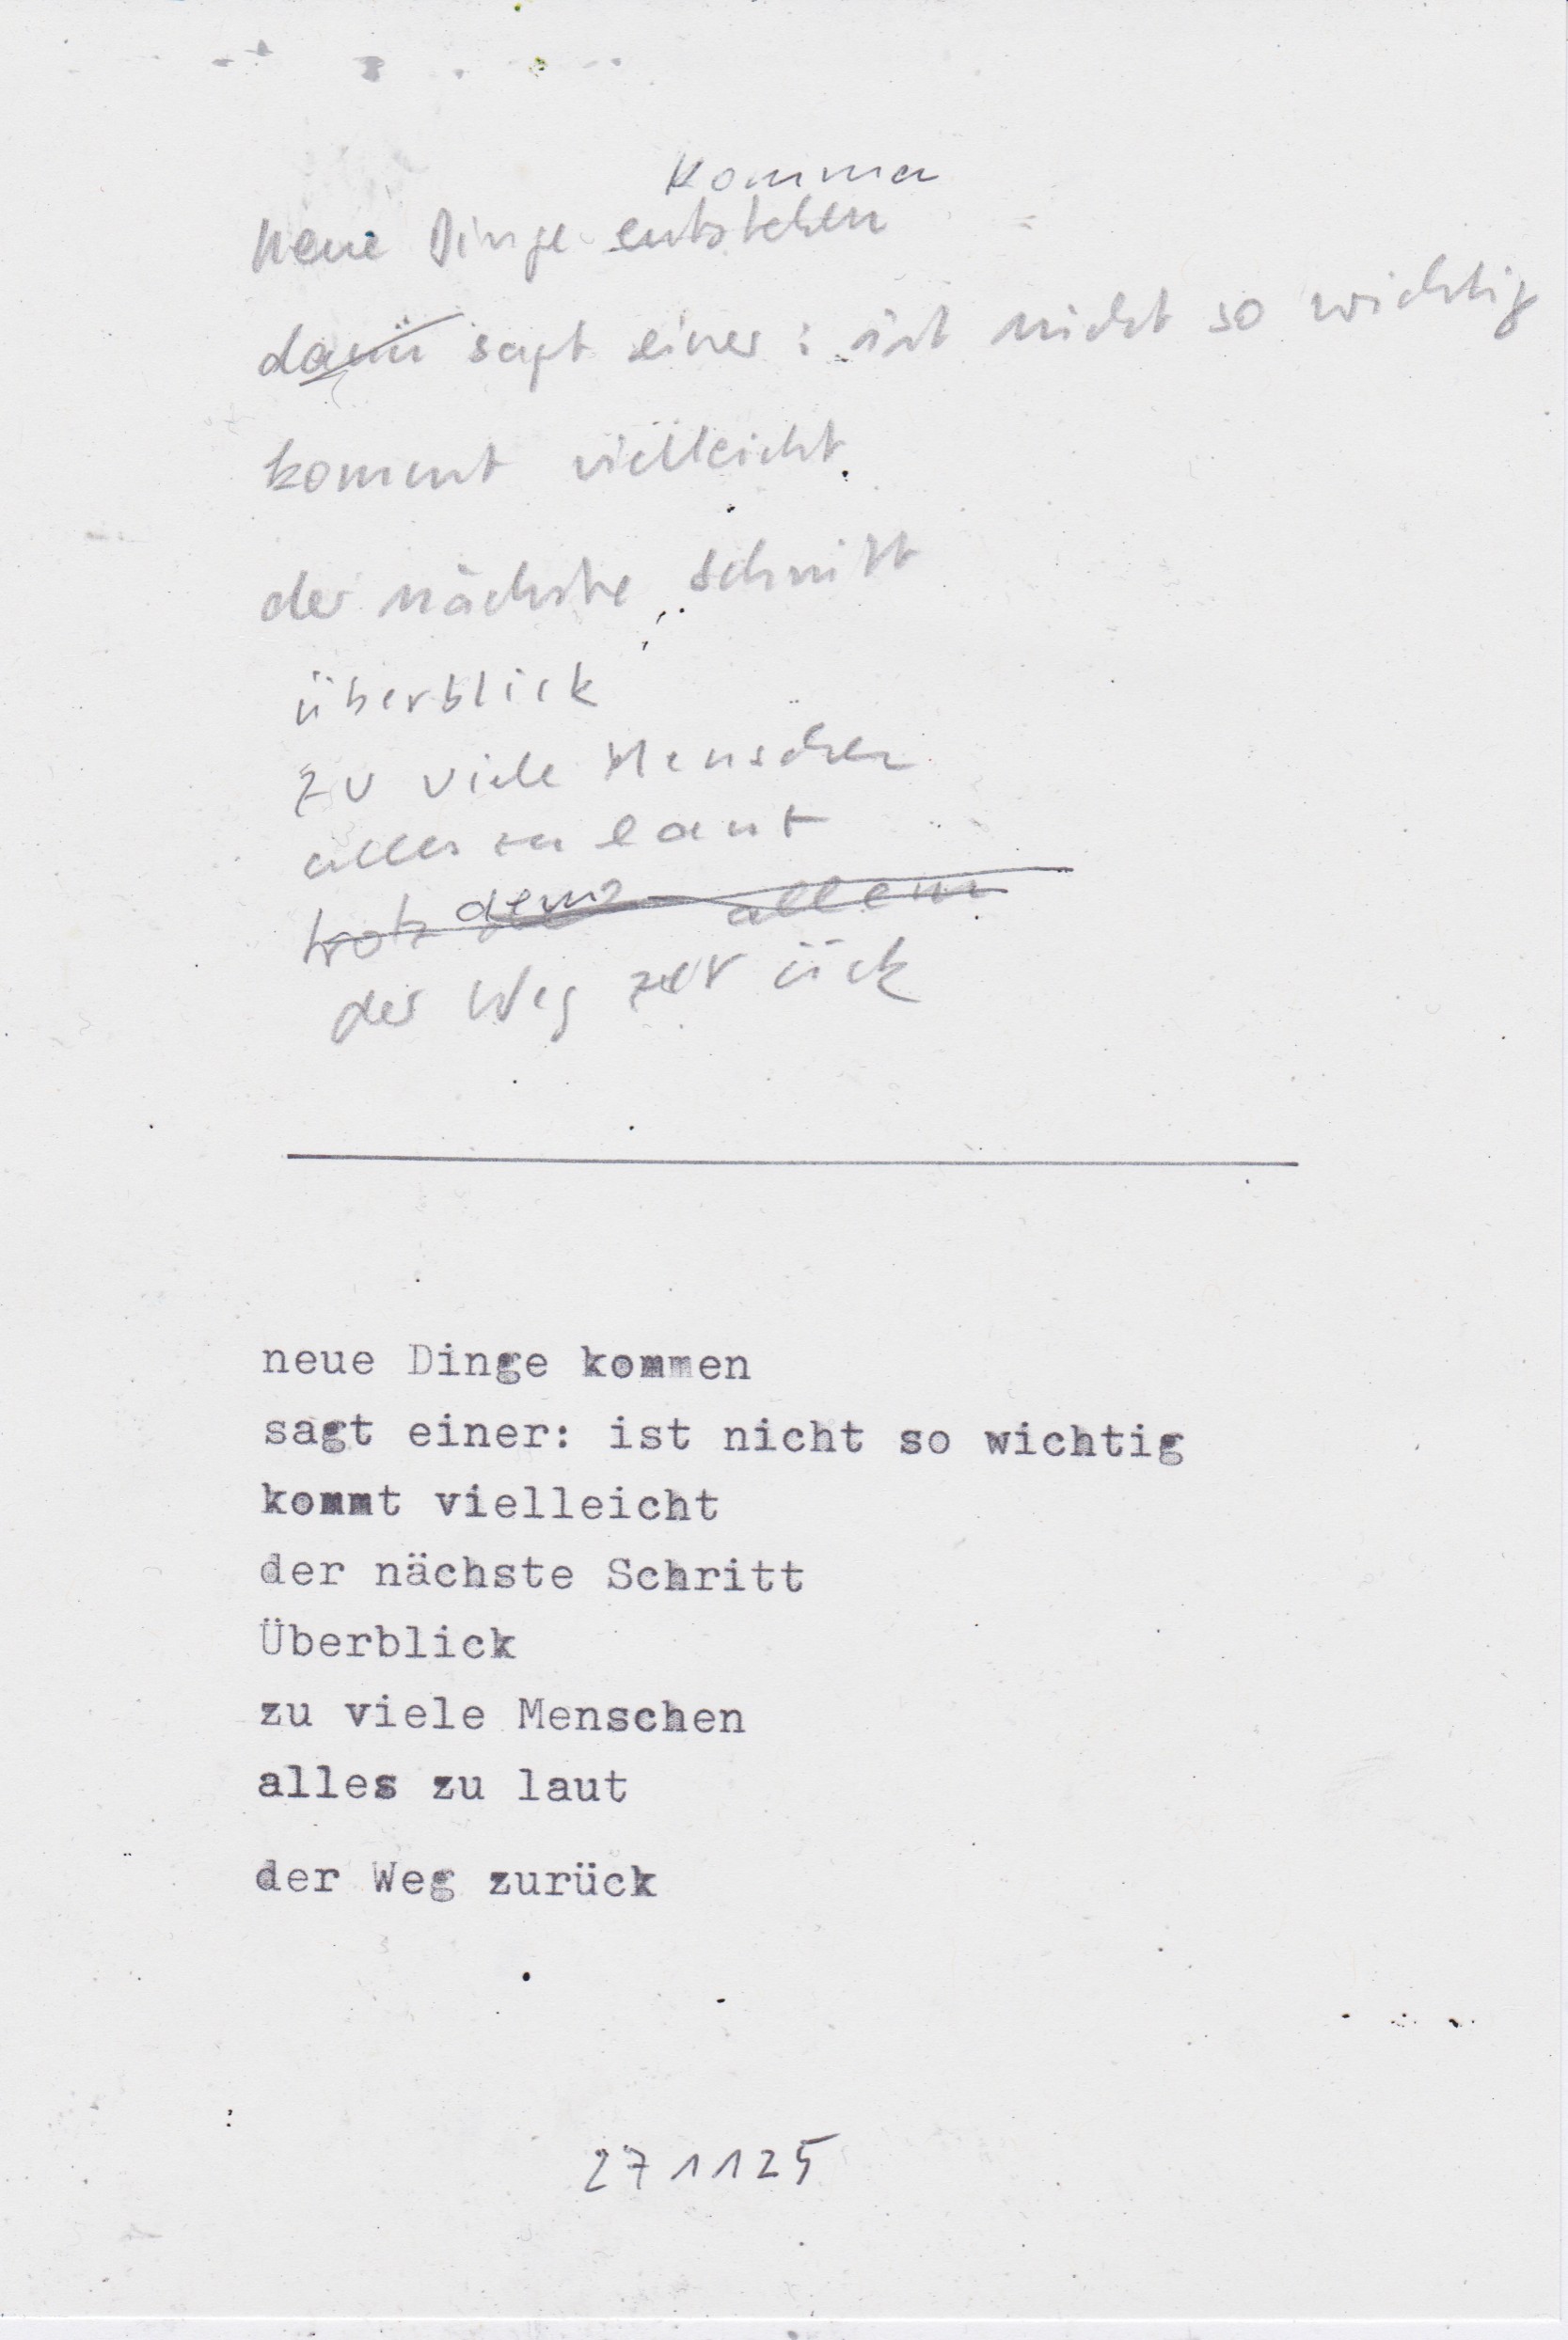 Komma
neue Dinge entstehen
dann sagt einer: ist nicht so wichtig
kommt vielleicht
der nächste schnitt
überblick
zu viele Menschen
alles zu laut
trotz dem allem
der Weg zurück
neue Dinge kommen
sagt einer: ist nicht so wichtig
kommt vielleicht
der nächste Schritt
Überblick
zu viele Menschen
alles zu laut
der Weg zurück
271125